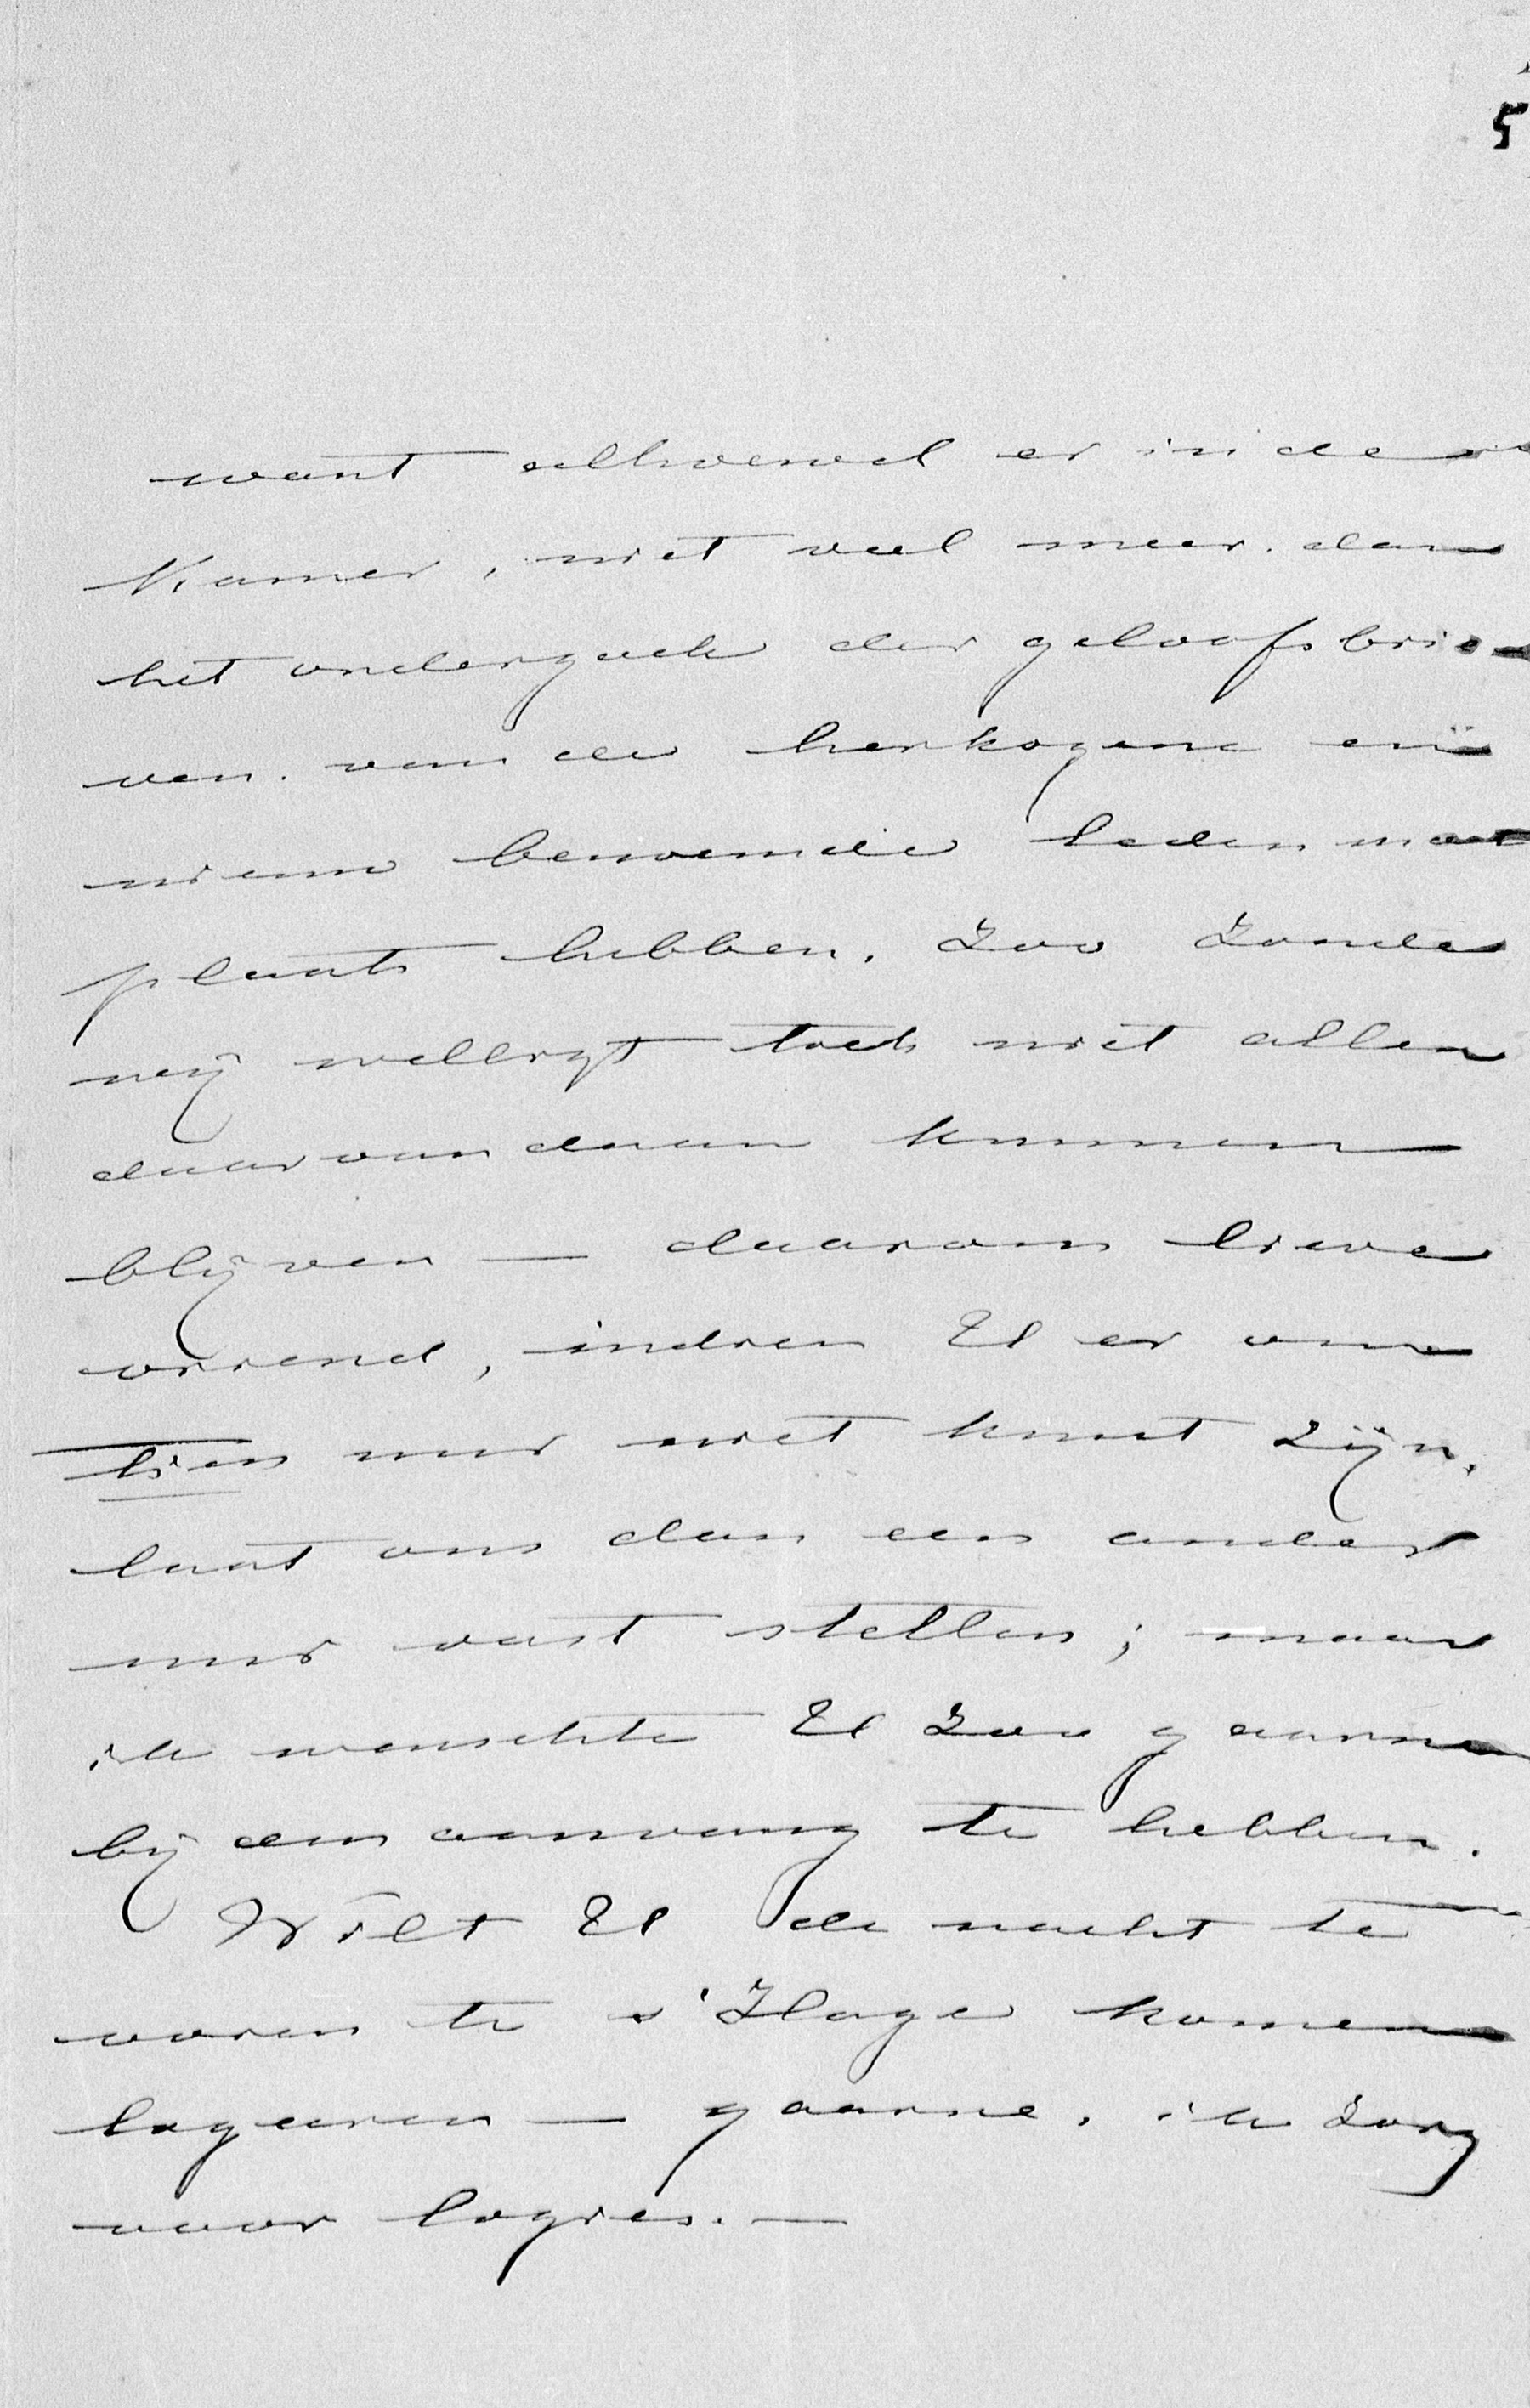 5
want alhoewel er in de
Kamer, niet veel meer dan
het onderzoek der geloofsbrie
ven van de herkozene en
nieuw benoemde leden moet
plaats hebben. Zoo zonde
wij welligt toch niet allen
daar van daan kunnen
blijven — daarom lieve
vriend, indien U er om
tien uur niet kunt zijn,
laat ons dan een ander
uur vast stellen; maar
ik wenschte U zoo gaarne
bij den aanvang te hebben.
Wilt U de nacht te
voren te s'Hage komen
logeeren — gaarne, ik zorg
voor logies. —